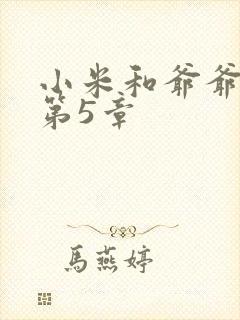 小米和爷爷
第5章
馬燕婷